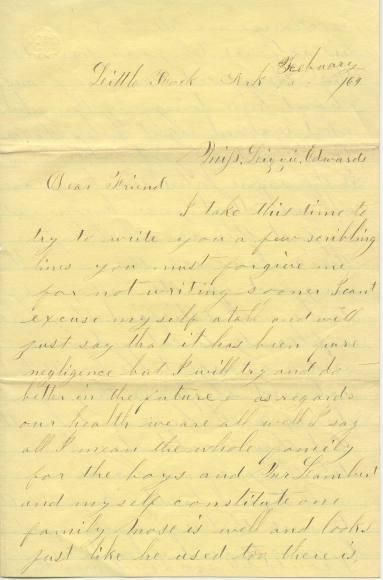 Little Rock Ark February
/69
Miss, Lizzie, Edwards
Dear Friend
I take this time to
try to write you a few scribling
lines you must forgive me
for not writing sooner I cant
excuse my self atall and will
just say that it has been pure
negligence but I will try and do
better in the future as regards
our health we are all well I say
all I mean the whole family
for the boys and Mr Lambert
and my self constitute one
family Mose is well and looks
just like he used too there is